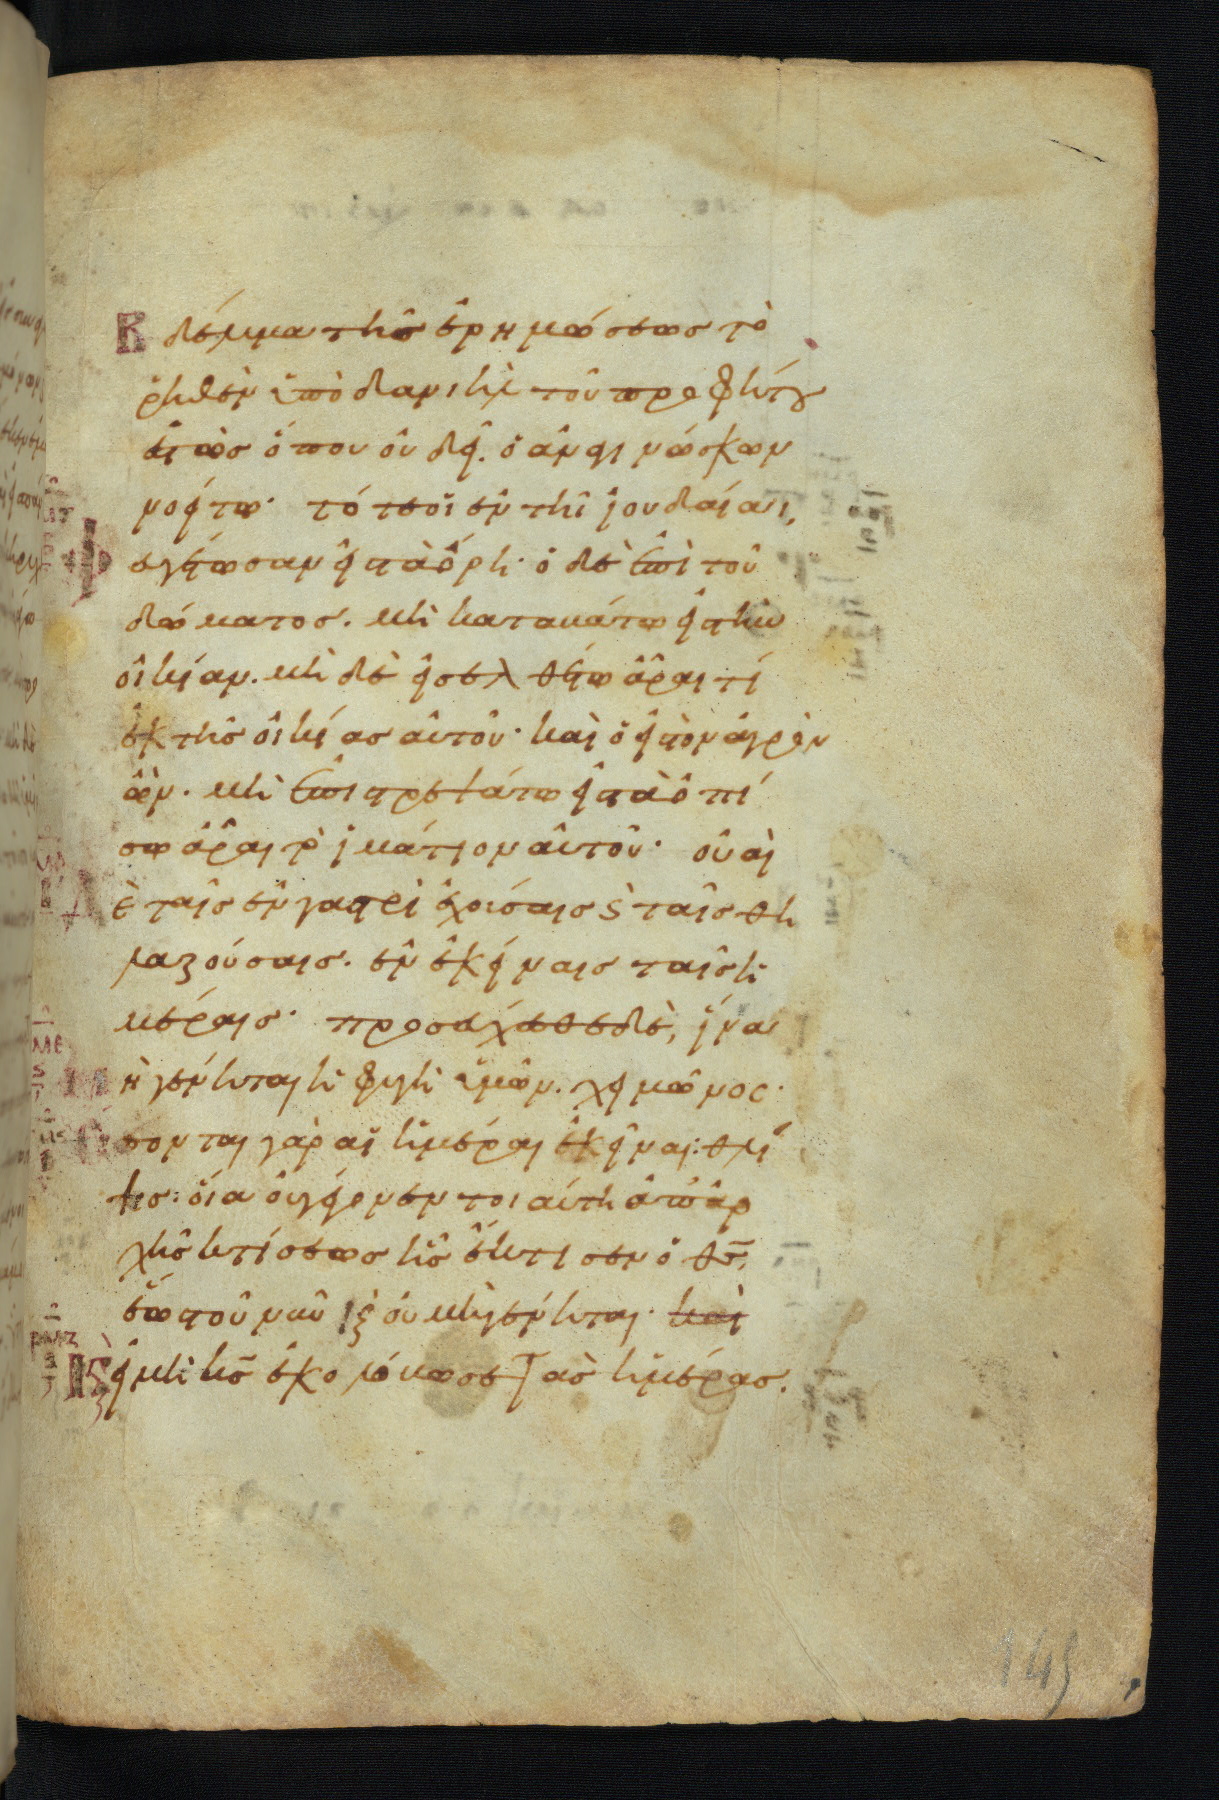 Βδέλυγμα τῆς ἐρημώσεως τὸ
ῥηθὲν ὑπὸ δανιὴλ τοῦ προφήτου
ἑστὼς ὅπου οὐ δεῖ. ὁ ἀναγινώσκων
νοείτω· τότε οἱ ἐν τῆ ἰουδαίαι,
φευγέτωσαν εἰς τὰ ὄρη· ὁ δὲ ἐπὶ τοῦ
δώματος. μὴ καταβάτω εἰς τὴν
οἰκίαν. μὴ δὲ εἰσελθέτω ἆραι τί
ἐκ τῆς οἰκίας αὐτοῦ· καὶ ὁ εἰς τὸν ἀγρὸν
ὢν. μὴ ἐπιστρεψάτω εἰς τὰ ὀπί
σω ἆραι τὸ ἱμάτιον αὐτοῦ· οὐαὶ
δὲ ταῖς ἐν γαστρὶ ἐχούσαις ϗ ταῖς θη
λαζούσαις. ἐν ἐκείναις ταῖς ἡ
μέραις· προσεύχεσθε δὲ, ἵνα
μὴ γένηται ἡ φυγὴ ὑμῶν. χειμῶνος·
ἔσονται γὰρ αἱ ἡμέραι ἐκεῖναι: θλί
ψις: οἵα οὐ γέγονεν τοιαύτη ἀπ' ἀρ
χῆς κτίσεως ἧς ἔκτισεν ὁ θς,
ἕως τοῦ νῦν ϗ οὐ μὴ γένηται· καὶ
εἰ μὴ κς ἐκολόβωσε τὰς ἡμέρας.
145